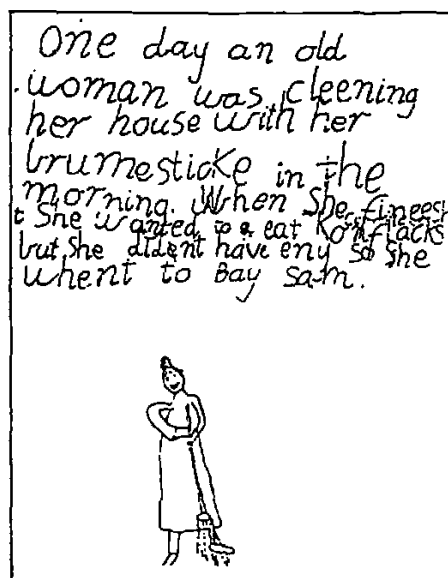 One day an old
woman was cleening
her house with her
brumesticke in the
morning. When she fineesh
t she wanted to eat Kornflacks
but she dident have eny so she
whent to Bay sam.